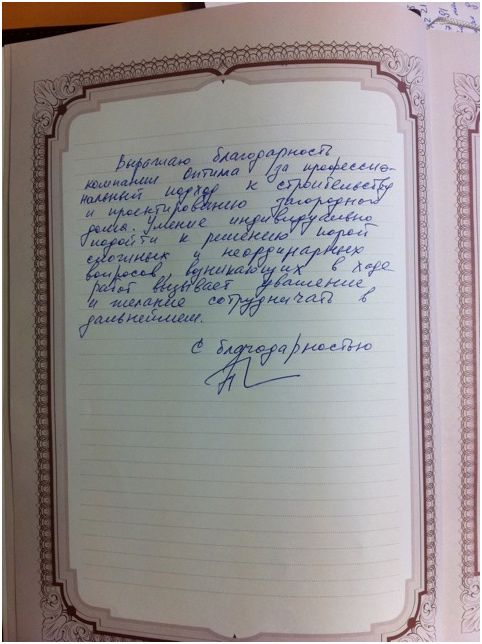 Выражаю благодарность
компании Оптима за профессио-
нальный подход к строительству
и проектированию загородного
дома. Умение индивидуально
подойти к решению порой
сложных и неординарных
вопросов, возникающих в ходе
работ вызывает уважение
и желание сотрудничать в
дальнейшем.
С благодарностью